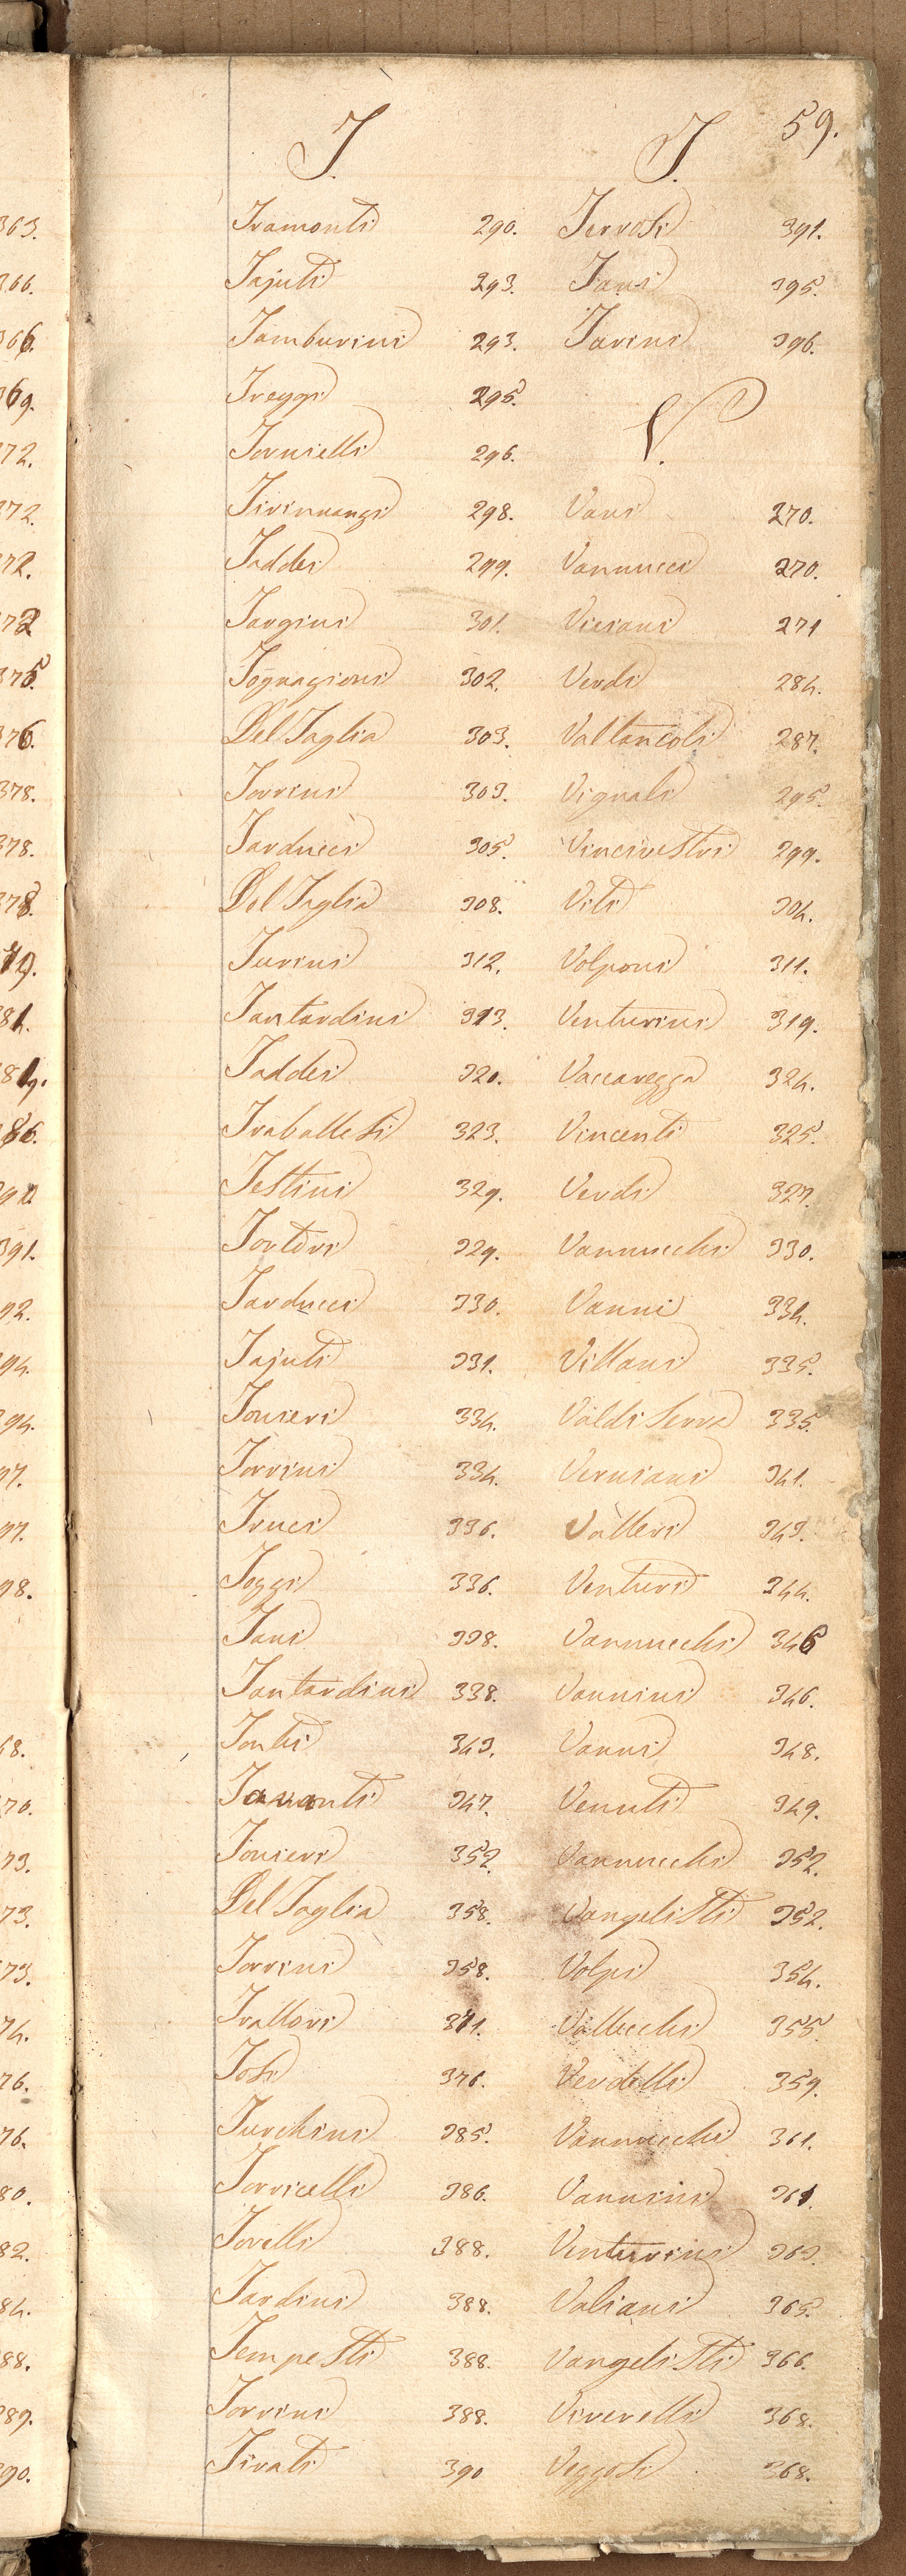 59.
T.
Tramonti 290.
Tajuti 293.
Tamburini 293.
Treggi 295.
Tornielli 296.
Tirinnanzi 298.
Taddei 299.
Targini 301.
Tognazioni 302.
Del Taglia 303.
Torrini 303.
Tarducci 305.
Del Taglia 308.
Turini 312.
Tantardini 313.
Taddei 320.
Traballesi 323.
Testini 329.
Tortori 329.
Tarducci 330.
Tajuti 331.
Tonieri 334.
Torrini 334.
Truci 336.
Toggi 336.
Tani 338.
Tantardini 338.
Tonti 343.
Tavanti 347.
Tonieri 352.
Del Taglia 358.
Torrini 358.
Trallori 371.
Tosi 376.
Turchini 385.
Torricelli 386.
Torelli 388.
Tardini 388.
Tempesti 388.
Torrini 388.
Tirati 390
T.
Terrosi 391.
Tani 395.
Tarini 396.
V.
Vani 270.
Vannucci 270.
Viciani 271
Verdi 284.
Valtancoli 287.
Vignali 295.
Vincivestri 299.
Viti 304.
Volponi 311.
Venturini 319.
Vaccarezza 324.
Vincenti 325.
Verdi 327.
Vannucchi 330.
Vanni 334.
Villani 335.
Valdiserra 335.
Verniani 341.
Valleri 343.
Venturi 344.
Vannucchi 346
Vannini 346.
Vanni 348.
Venuti 349.
Vannucchi 352.
Vangelisti 352.
Volpi 354.
Vallecchi 355.
Verdelli 359.
Vannucchi 361.
Vannini 361.
Venturini 363.
Valiani 365.
Vangelisti 366.
Viverelli 368.
Veggosi 368.